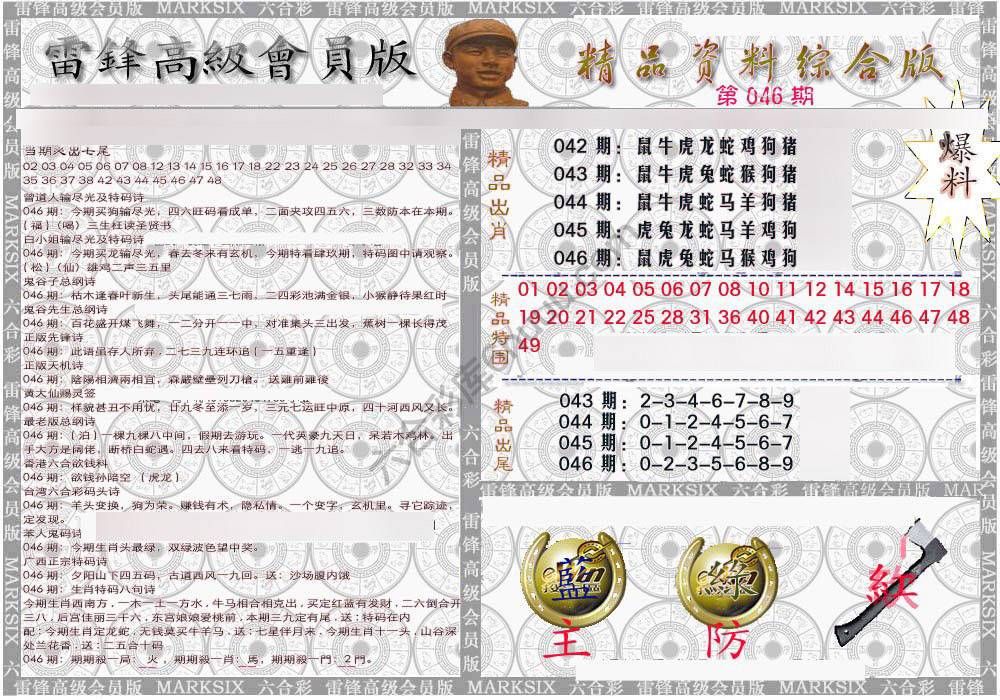 雷锋高级会员版 MARKSIX 六合彩 雷锋高级会员版 MARKSIX 六合彩 雷锋高级会员版
雷鋒高級會員版
精品资料综合版
第046期
爆料
当期来出七尾
02 03 04 05 06 07 08 12 13 14 15 16 17 18 22 23 24 25 26 27 28 32 33 34
35 36 37 38 42 43 44 45 46 47 48
曾道人输尽光及特码诗
046期：今期买狗输尽光，四六旺码看成单，二面夹攻四五六，三数防本在本期。
{福}（喝）三生枉读圣贤书
白小姐输尽光及特码诗
046期：今期买龙输尽光，春去冬来有玄机，今期特看肆玖期，特码图中请观察。
{松}（仙）雄鸡二声三五里
鬼谷子总纲诗
046期：枯木逢春叶新生，头尾能通三七雨，二四彩池满金银，小猴静待果红时
鬼谷先生总纲诗
046期：百花盛开煤飞舞，一二分开一一中，对准集头三出发，蕉树一棵长得茂
正版先锋诗
046期：此语虽存人所弃，二七三九连环追{一五重逢}
正版天机诗
046期：陰陽相濟兩相宜，森嚴壁壘列刀槍。送雞前雞後
黄大仙赐灵签
046期：样貌甚丑不用忧，廿九冬至添一岁，三元七运旺中原，四十河西风又长。
最老版总纲诗
046期：{泊}一棵九棵八中间，假期去游玩。一代英豪九天日，呆若木鸡林。出
手大方是阔佬，断桥白蛇遇。四去八来看特码，一逃一九追。
香港六合欲钱料
046期：欲钱孙陪空 （虎龙）
台湾六合彩码头诗
046期：羊头变换，狗为荣。赚钱有术，隐私情。一个变字，玄机里。寻它踪迹，
定发现。
笨人鬼码诗
046期：今期生肖头最绿，双绿波色望中奖。
广西正宗特码诗
046期：夕阳山下四五码，古道西风一九回。送：沙场腹内饿
046期：生肖特码八句诗
今期生肖西南方，一木一土一方水，牛马相合相克出，买定红蓝有发财，二六倒合开
三八，后宫佳丽三千六，东宫娘娘爱桃前，本期三九定有尾，送：特码在内
配：今期生肖定龙蛇，无钱莫买牛羊马，送：七星伴月来，今期生肖十一头，山谷深
处兰花香，送：二五合十码
046期：期期殺一局：火，期期殺一肖：馬，期期殺一門：2門。
精品出肖
042期：鼠牛虎龙蛇鸡狗猪
043期：鼠牛虎兔蛇猴狗猪
044期：鼠牛虎蛇马羊狗猪
045期：虎兔龙蛇马羊鸡狗
046期：鼠虎兔蛇马猴鸡狗
精品特围
01 02 03 04 05 06 07 08 10 11 12 14 15 16 17 18
19 20 21 22 25 28 31 36 40 41 42 43 44 46 47 48
49
精品出尾
043期：2-3-4-6-7-8-9
044期：0-1-2-4-5-6-7
045期：0-1-2-4-5-6-7
046期：0-2-3-5-6-8-9
雷锋高级会员版 MARKSIX 六合彩 雷锋高级会员版 MARKSIX
藍
主
绿
防
紅
雷锋高级会员版 MARKSIX 六合彩 雷锋高级会员版 MARKSIX 六合彩 雷锋高级会员版